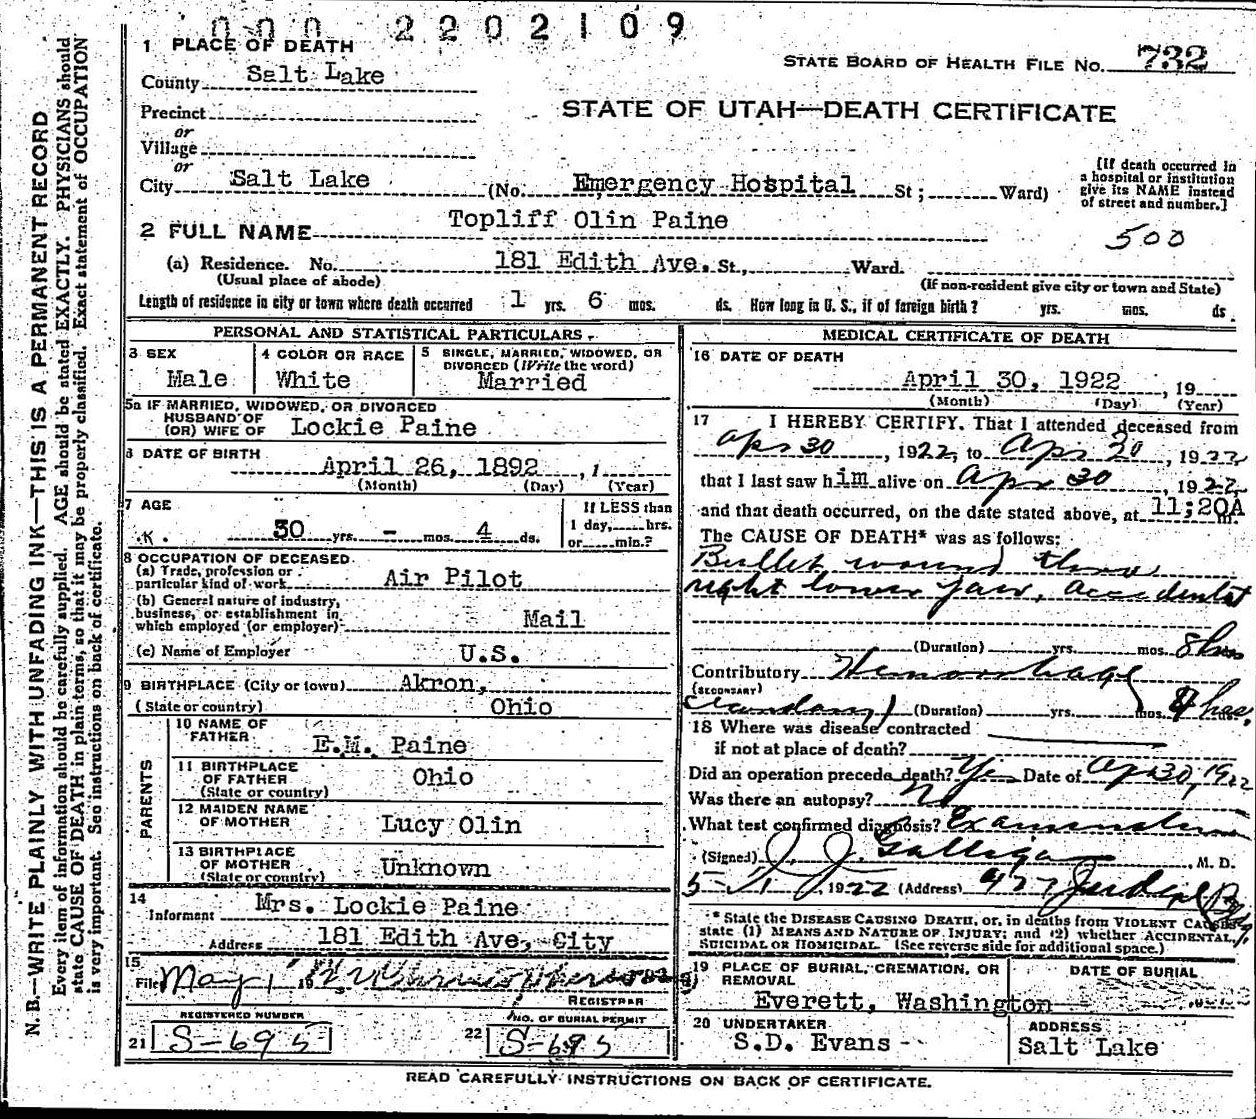 000 2202109
1 PLACE OF DEATH
County Salt Lake
STATE BOARD OF HEALTH FILE NO. 732
Precinct
or
Village
or
STATE OF UTAH—DEATH CERTIFICATE
City Salt Lake (No. Emergency Hospital St; Ward)
[If death occurred in
a hospital or institution
give its NAME instead
of street and number.]
500
2 FULL NAME Topliff Olin Paine
(a) Residence. No. 181 Edith Ave. St., Ward.
(Usual place of abode) (If non-resident give city or town and State)
Length of residence in city or town where death occurred 1 yrs. 6 mos. ds. How long in U. S., if of foreign birth? yrs. mos. ds.
PERSONAL AND STATISTICAL PARTICULARS
3 SEX
Male
4 COLOR OR RACE
White
5 SINGLE, MARRIED, WIDOWED, OR
DIVORCED (Write the word)
Married
5a IF MARRIED, WIDOWED, OR DIVORCED
HUSBAND OF
(OR) WIFE OF Lockie Paine
6 DATE OF BIRTH
April 26, 1892, 1
(Month) (Day) (Year)
7 AGE
30 yrs. - mos. 4 ds.
If LESS than
1 day, hrs.
or min.?
8 OCCUPATION OF DECEASED
(a) Trade, profession or
particular kind of work Air Pilot
(b) General nature of industry,
business, or establishment in
which employed (or employer) Mail
(c) Name of Employer U.S.
9 BIRTHPLACE (City or town) Akron,
(State or country) Ohio
PARENTS
10 NAME OF
FATHER E.M. Paine
11 BIRTHPLACE
OF FATHER Ohio
(State or country)
12 MAIDEN NAME
OF MOTHER Lucy Olin
13 BIRTHPLACE
OF MOTHER Unknown
(State or country)
14
Informant Mrs. Lockie Paine
Address 181 Edith Ave, City
15
File May 1
REGISTRAR
REGISTERED NUMBER
21 S-695
NO. OF BURIAL PERMIT
22 S-695
MEDICAL CERTIFICATE OF DEATH
16 DATE OF DEATH
April 30, 1922, 19
(Month) (Day) (Year)
17 I HEREBY CERTIFY, That I attended deceased from
Apr 30, 1922, to Apr 30, 1922
that I last saw him alive on Apr 30, 1922
and that death occurred, on the date stated above, at 11;20A m.
The CAUSE OF DEATH* was as follows:
Bullet wound thru
right lower jaw, accidental
(Duration) yrs. mos. 8 hrs
Contributory Hemorrhage
(SECONDARY)
secondary) (Duration) yrs. mos. 4 hrs.
18 Where was disease contracted
if not at place of death?
Did an operation precede death? Yes Date of Apr 30, 1922
Was there an autopsy? No
What test confirmed diagnosis? Examination
(Signed) J. J. Galligan M. D.
5-1, 1922 (Address)
* State the DISEASE CAUSING DEATH, or, in deaths from VIOLENT CAUSES,
state (1) MEANS AND NATURE OF INJURY; and (2) whether ACCIDENTAL,
SUICIDAL OR HOMICIDAL. (See reverse side for additional space.)
19 PLACE OF BURIAL, CREMATION, OR
REMOVAL
Everett, Washington
DATE OF BURIAL
20 UNDERTAKER
S.D. Evans
ADDRESS
Salt Lake
READ CAREFULLY INSTRUCTIONS ON BACK OF CERTIFICATE.
N. B.—WRITE PLAINLY WITH UNFADING INK—THIS IS A PERMANENT RECORD
Every item of information should be carefully supplied. AGE should be stated EXACTLY. PHYSICIANS should
state CAUSE OF DEATH in plain terms, so that it may be properly classified. Exact statement of OCCUPATION
is very important. See instructions on back of certificate.